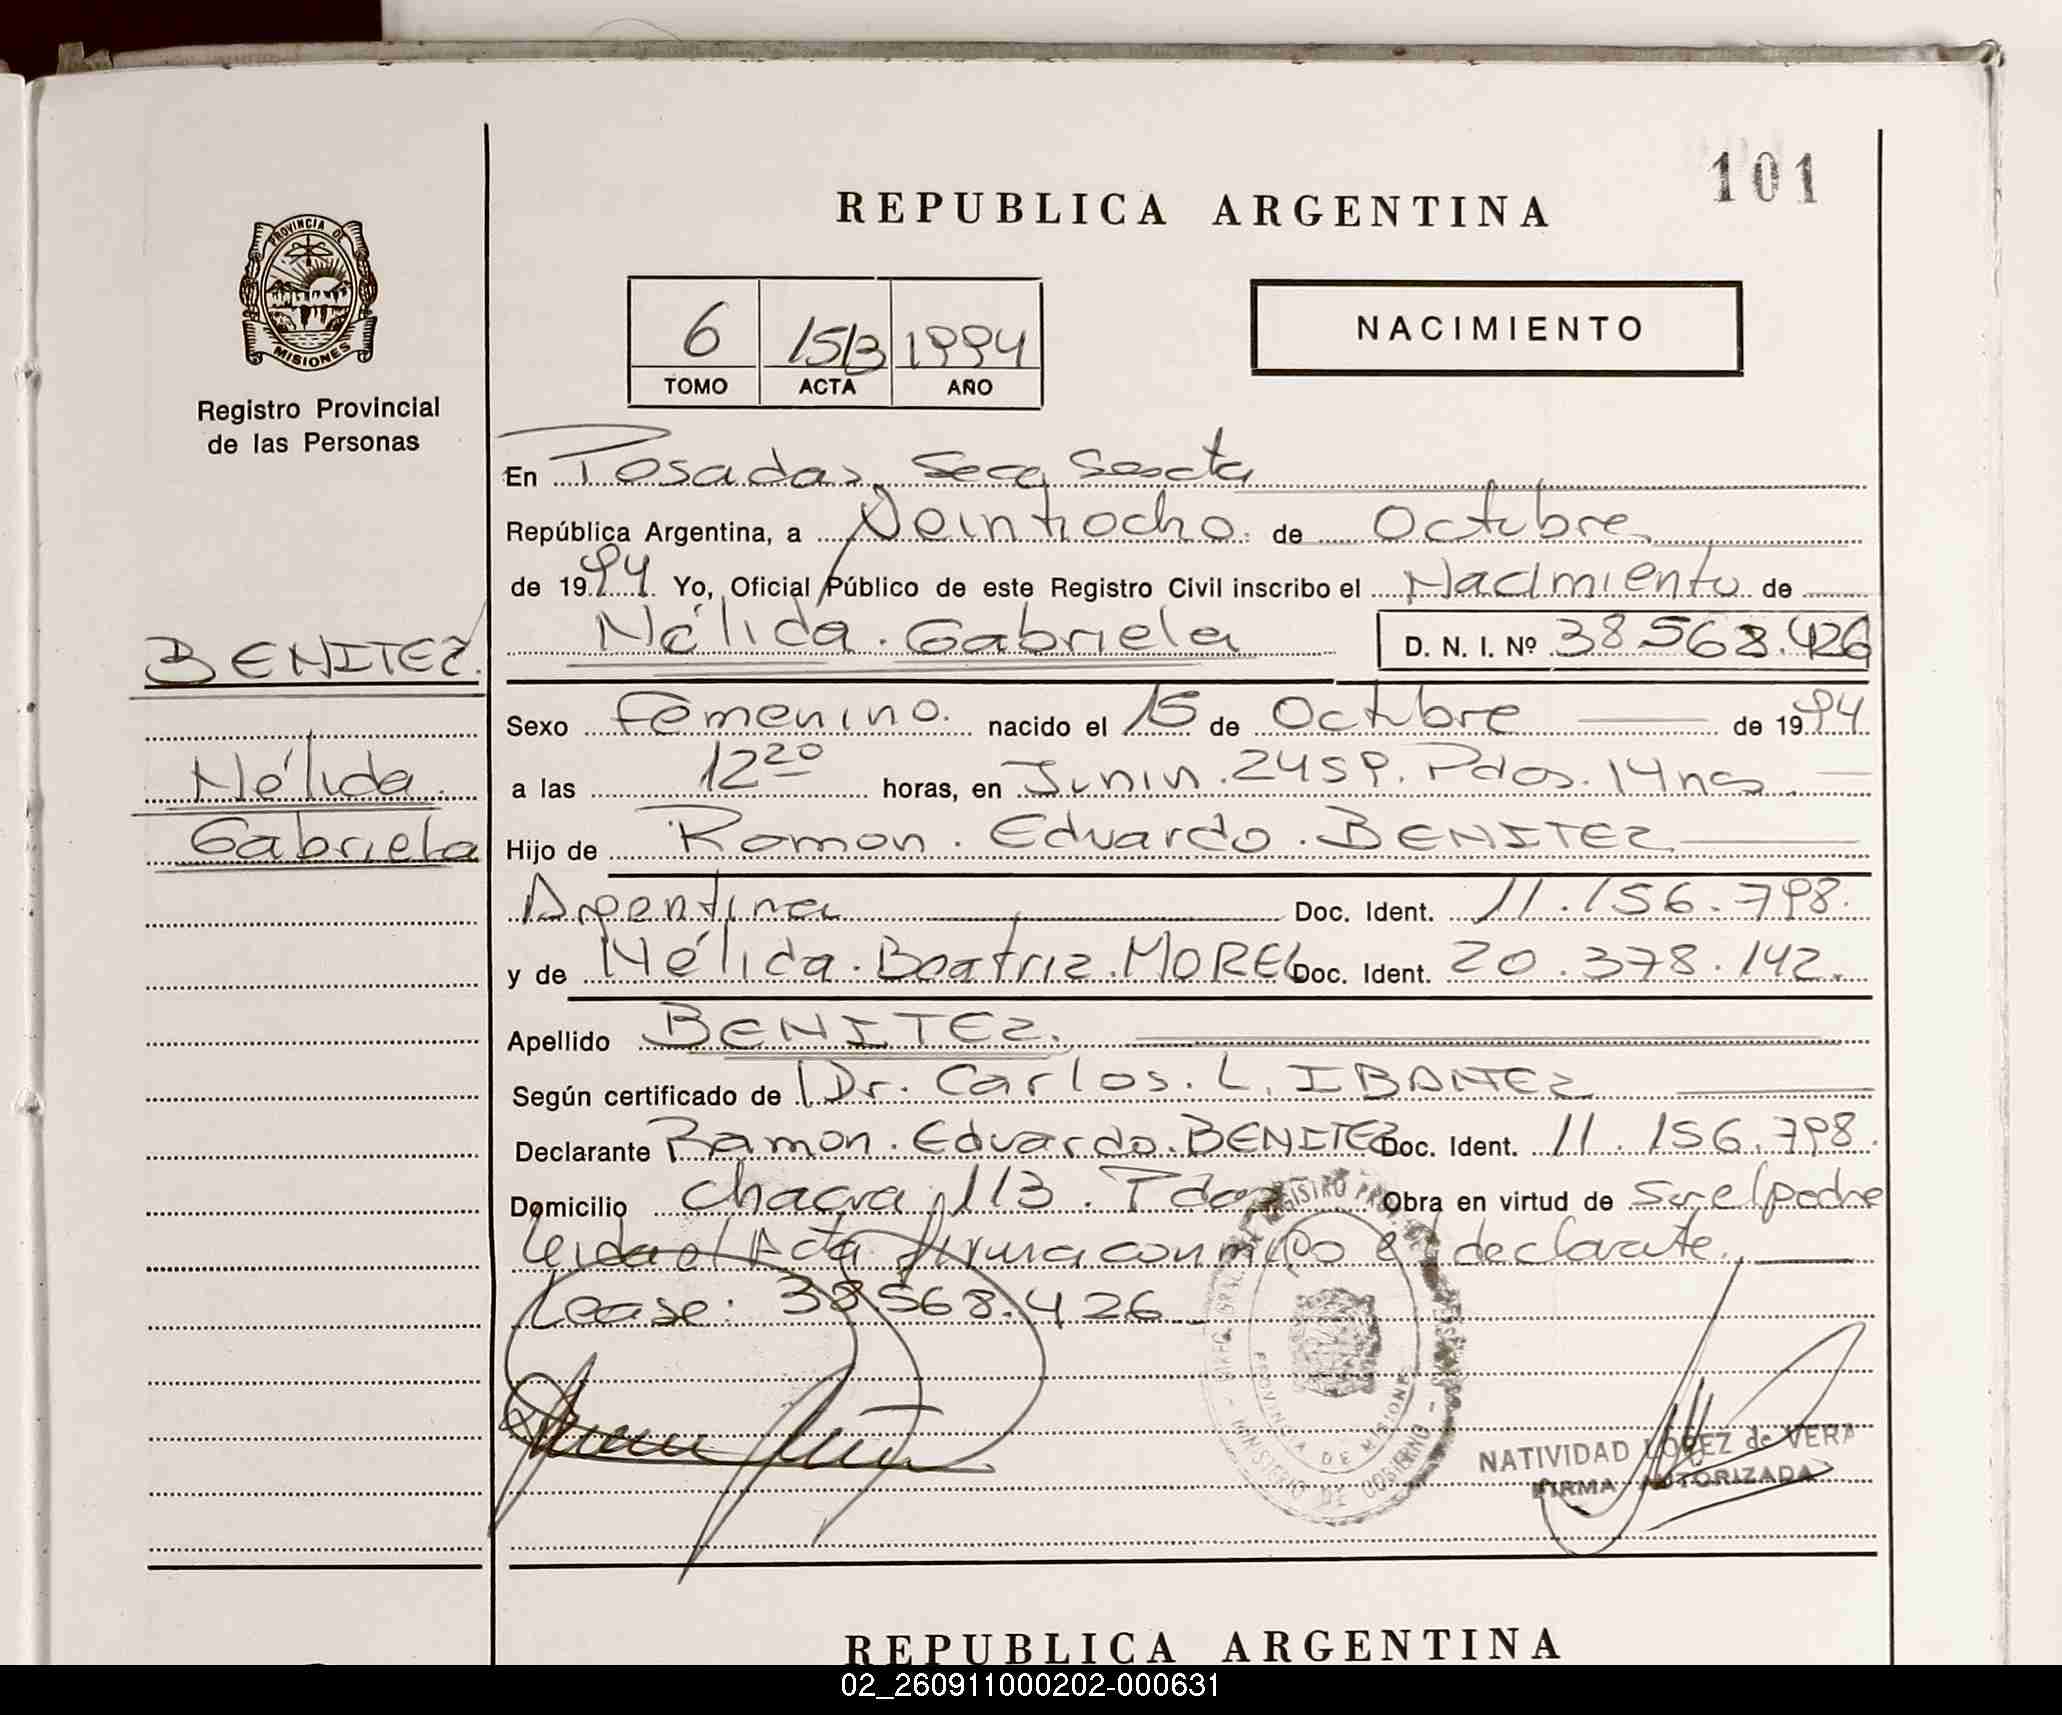 101
REPUBLICA ARGENTINA
PROVINCIA DE
MISIONES
Registro Provincial
de las Personas
6 1513 1994
TOMO ACTA AÑO
NACIMIENTO
En Posadas, Secc Sexta
República Argentina, a Veintiocho de Octubre
de 1994 Yo, Oficial Público de este Registro Civil inscribo el Nacimiento de
Nélida Gabriela D. N. I. Nº 38.568.426
BENITEZ
Nélida
Gabriela
Sexo femenino. nacido el 15 de Octubre de 1994
a las 12 20 horas, en Junin. 2459. Pdas. 14 ns
Hijo de Ramon. Eduardo. BENITEZ
Argentina Doc. Ident. 11.156.798.
y de Nélida. Beatriz. MOREL Doc. Ident. 20.378.142.
Apellido BENITEZ.
Según certificado de Dr. Carlos. L. IBAÑEZ
Declarante Ramon. Eduardo. BENITEZ Doc. Ident. 11.156.798.
Domicilio chacra 113. Pdas Obra en virtud de ser el padre
leida el Acta firma conmigo el declarante.
Lease: 38.568.426
PROVINCIA DE MISIONES
MINISTERIO DE GOBIERNO
NATIVIDAD LOPEZ de VERA
FIRMA AUTORIZADA
REPUBLICA ARGENTINA
02_260911000202-000631